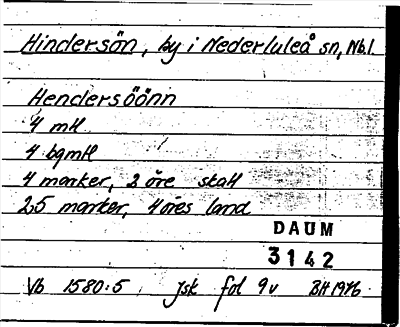 Hindersön, by i Nederluleå sn, Nb.l.
Hendersöönn
4 mtl
4 bgmtl
4 marker, 2 öre skatt
25 marker, 4 öres land
DAUM
3142
Vb 1580:5 jsk fol 9v BH 1976